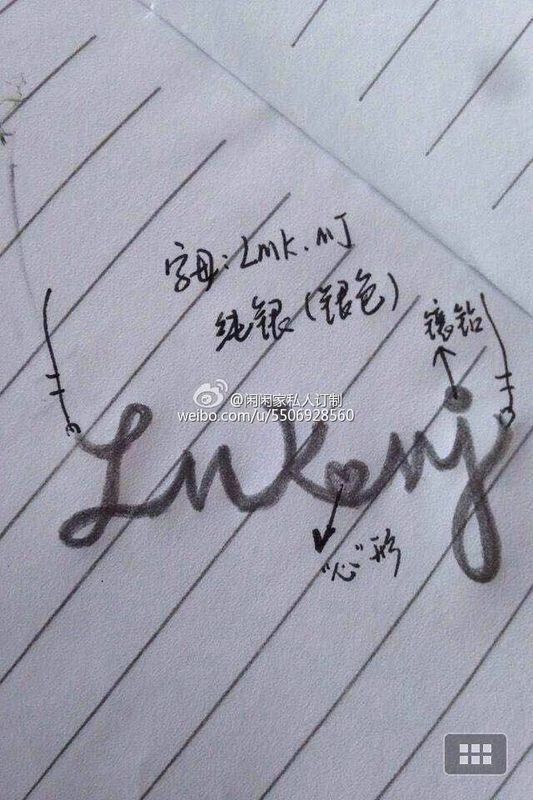 字母：Lmk.mJ
纯银（银色）
镶钻
@闲闲家私人订制
weibo.com/u/5506928560
Lmk mj
“心”形